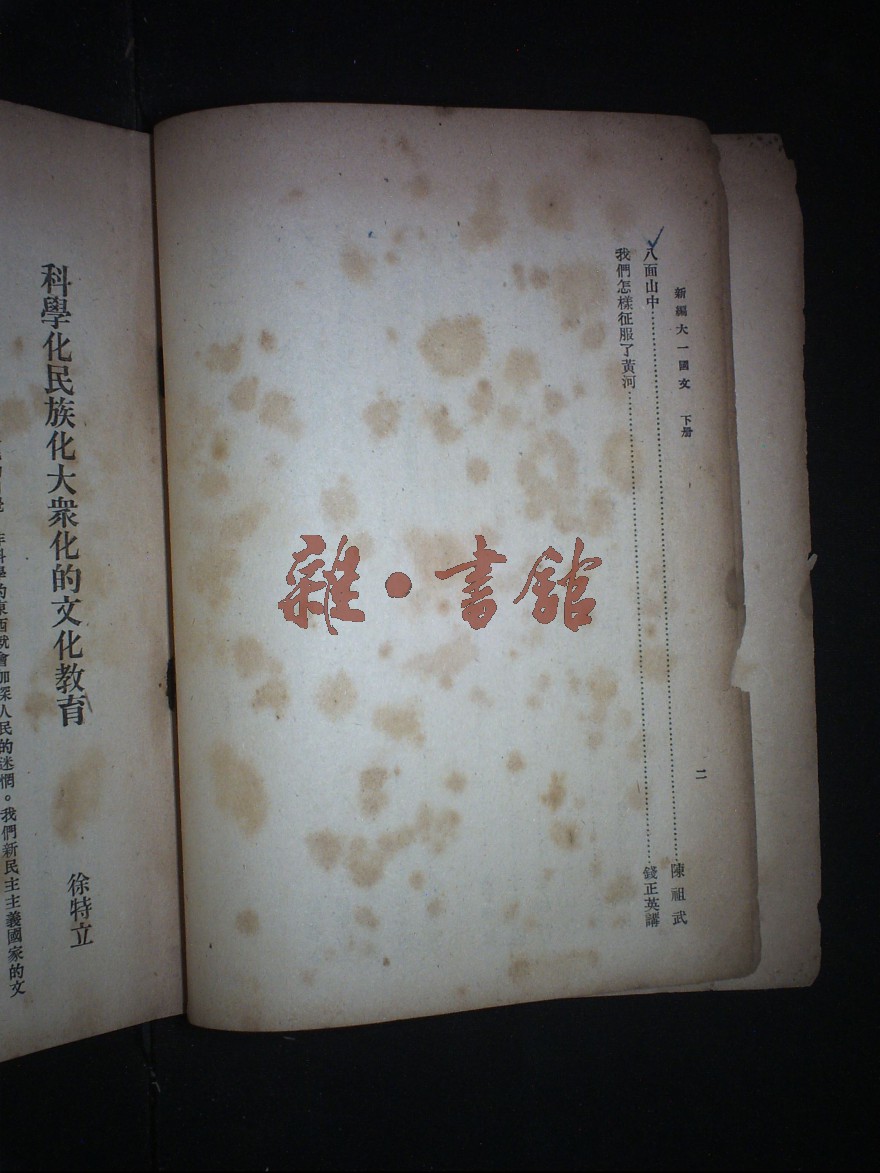 新編大一國文 下册
二
八面山中 陳祖武
我們怎樣征服了黃河 錢正英講
雜·書館
科學化民族化大衆化的文化教育
徐特立
非科學的東西就會加深人民的迷惘。我們新民主主義國家的文